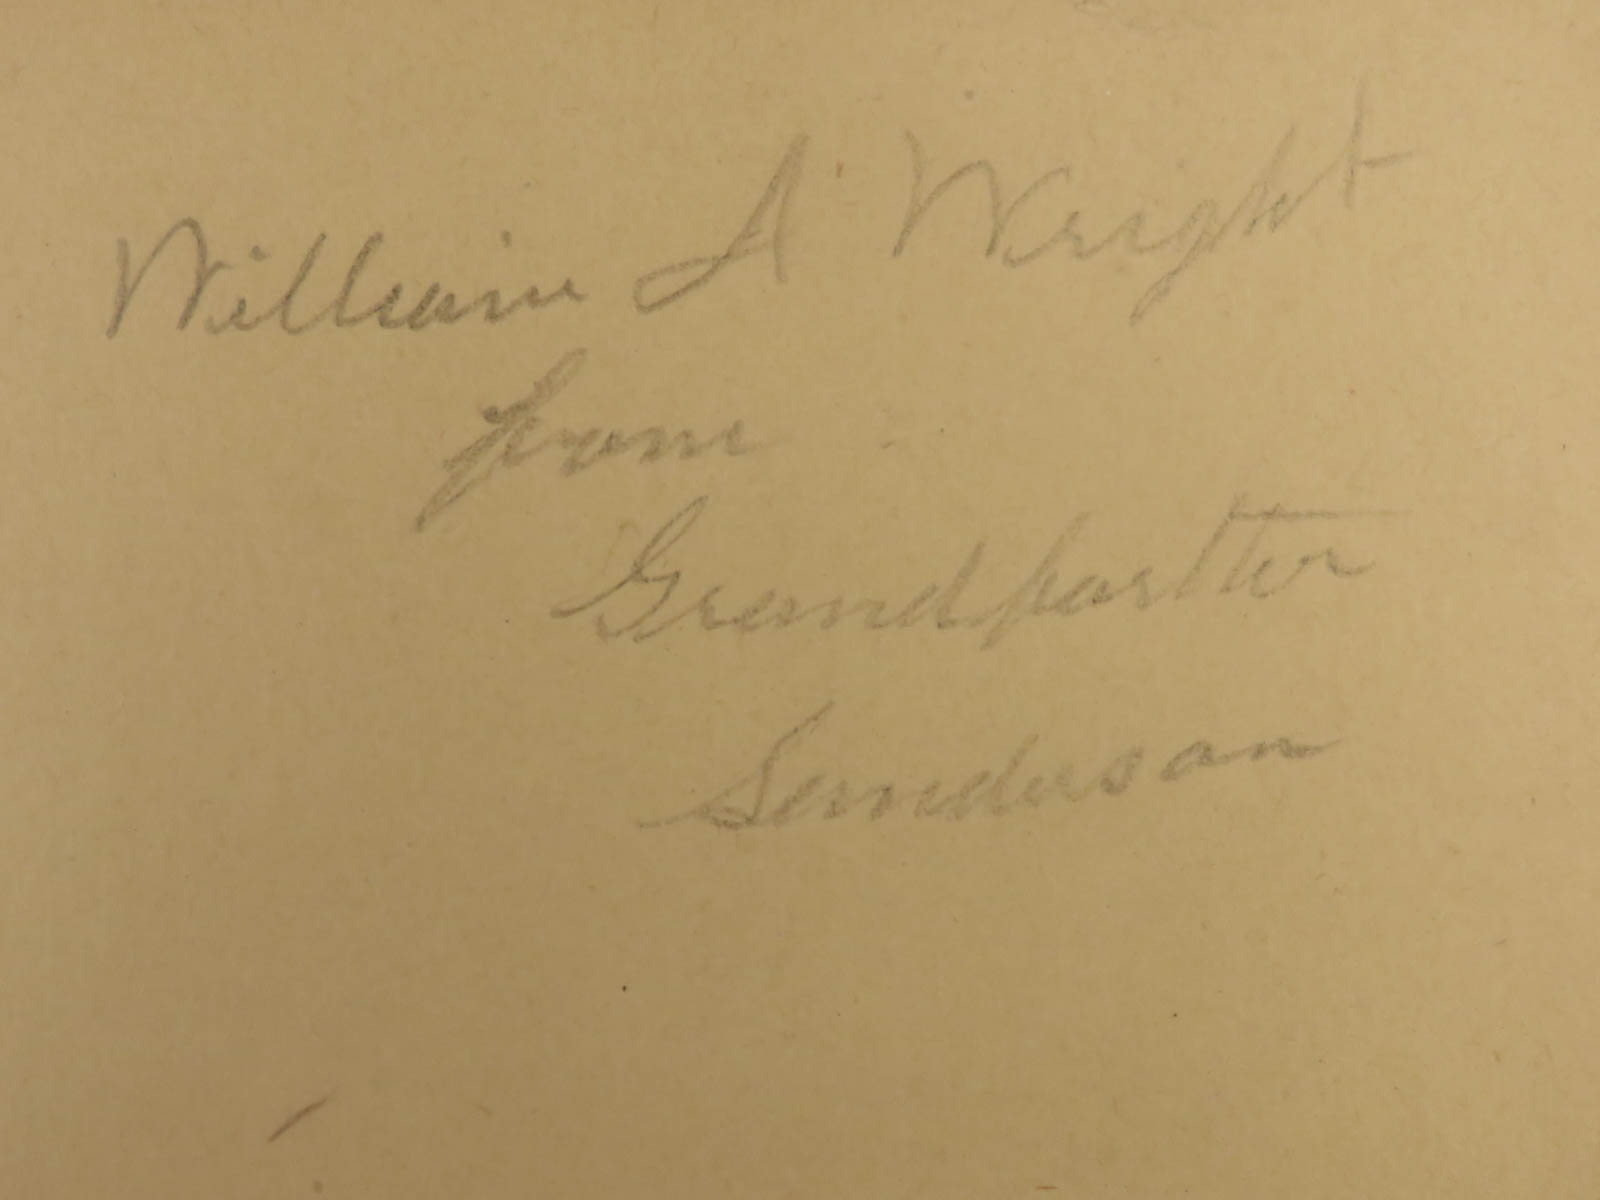 William A Wright
from
Grandfarther
Sanderson